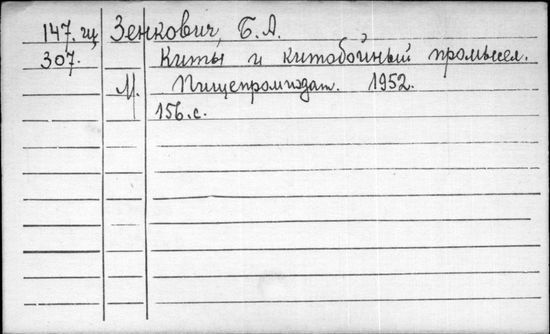 147.гц Зенкович, Б.А.
307. Киты и китобойный промысел.
М. Пищепромиздат. 1952.
156.с.